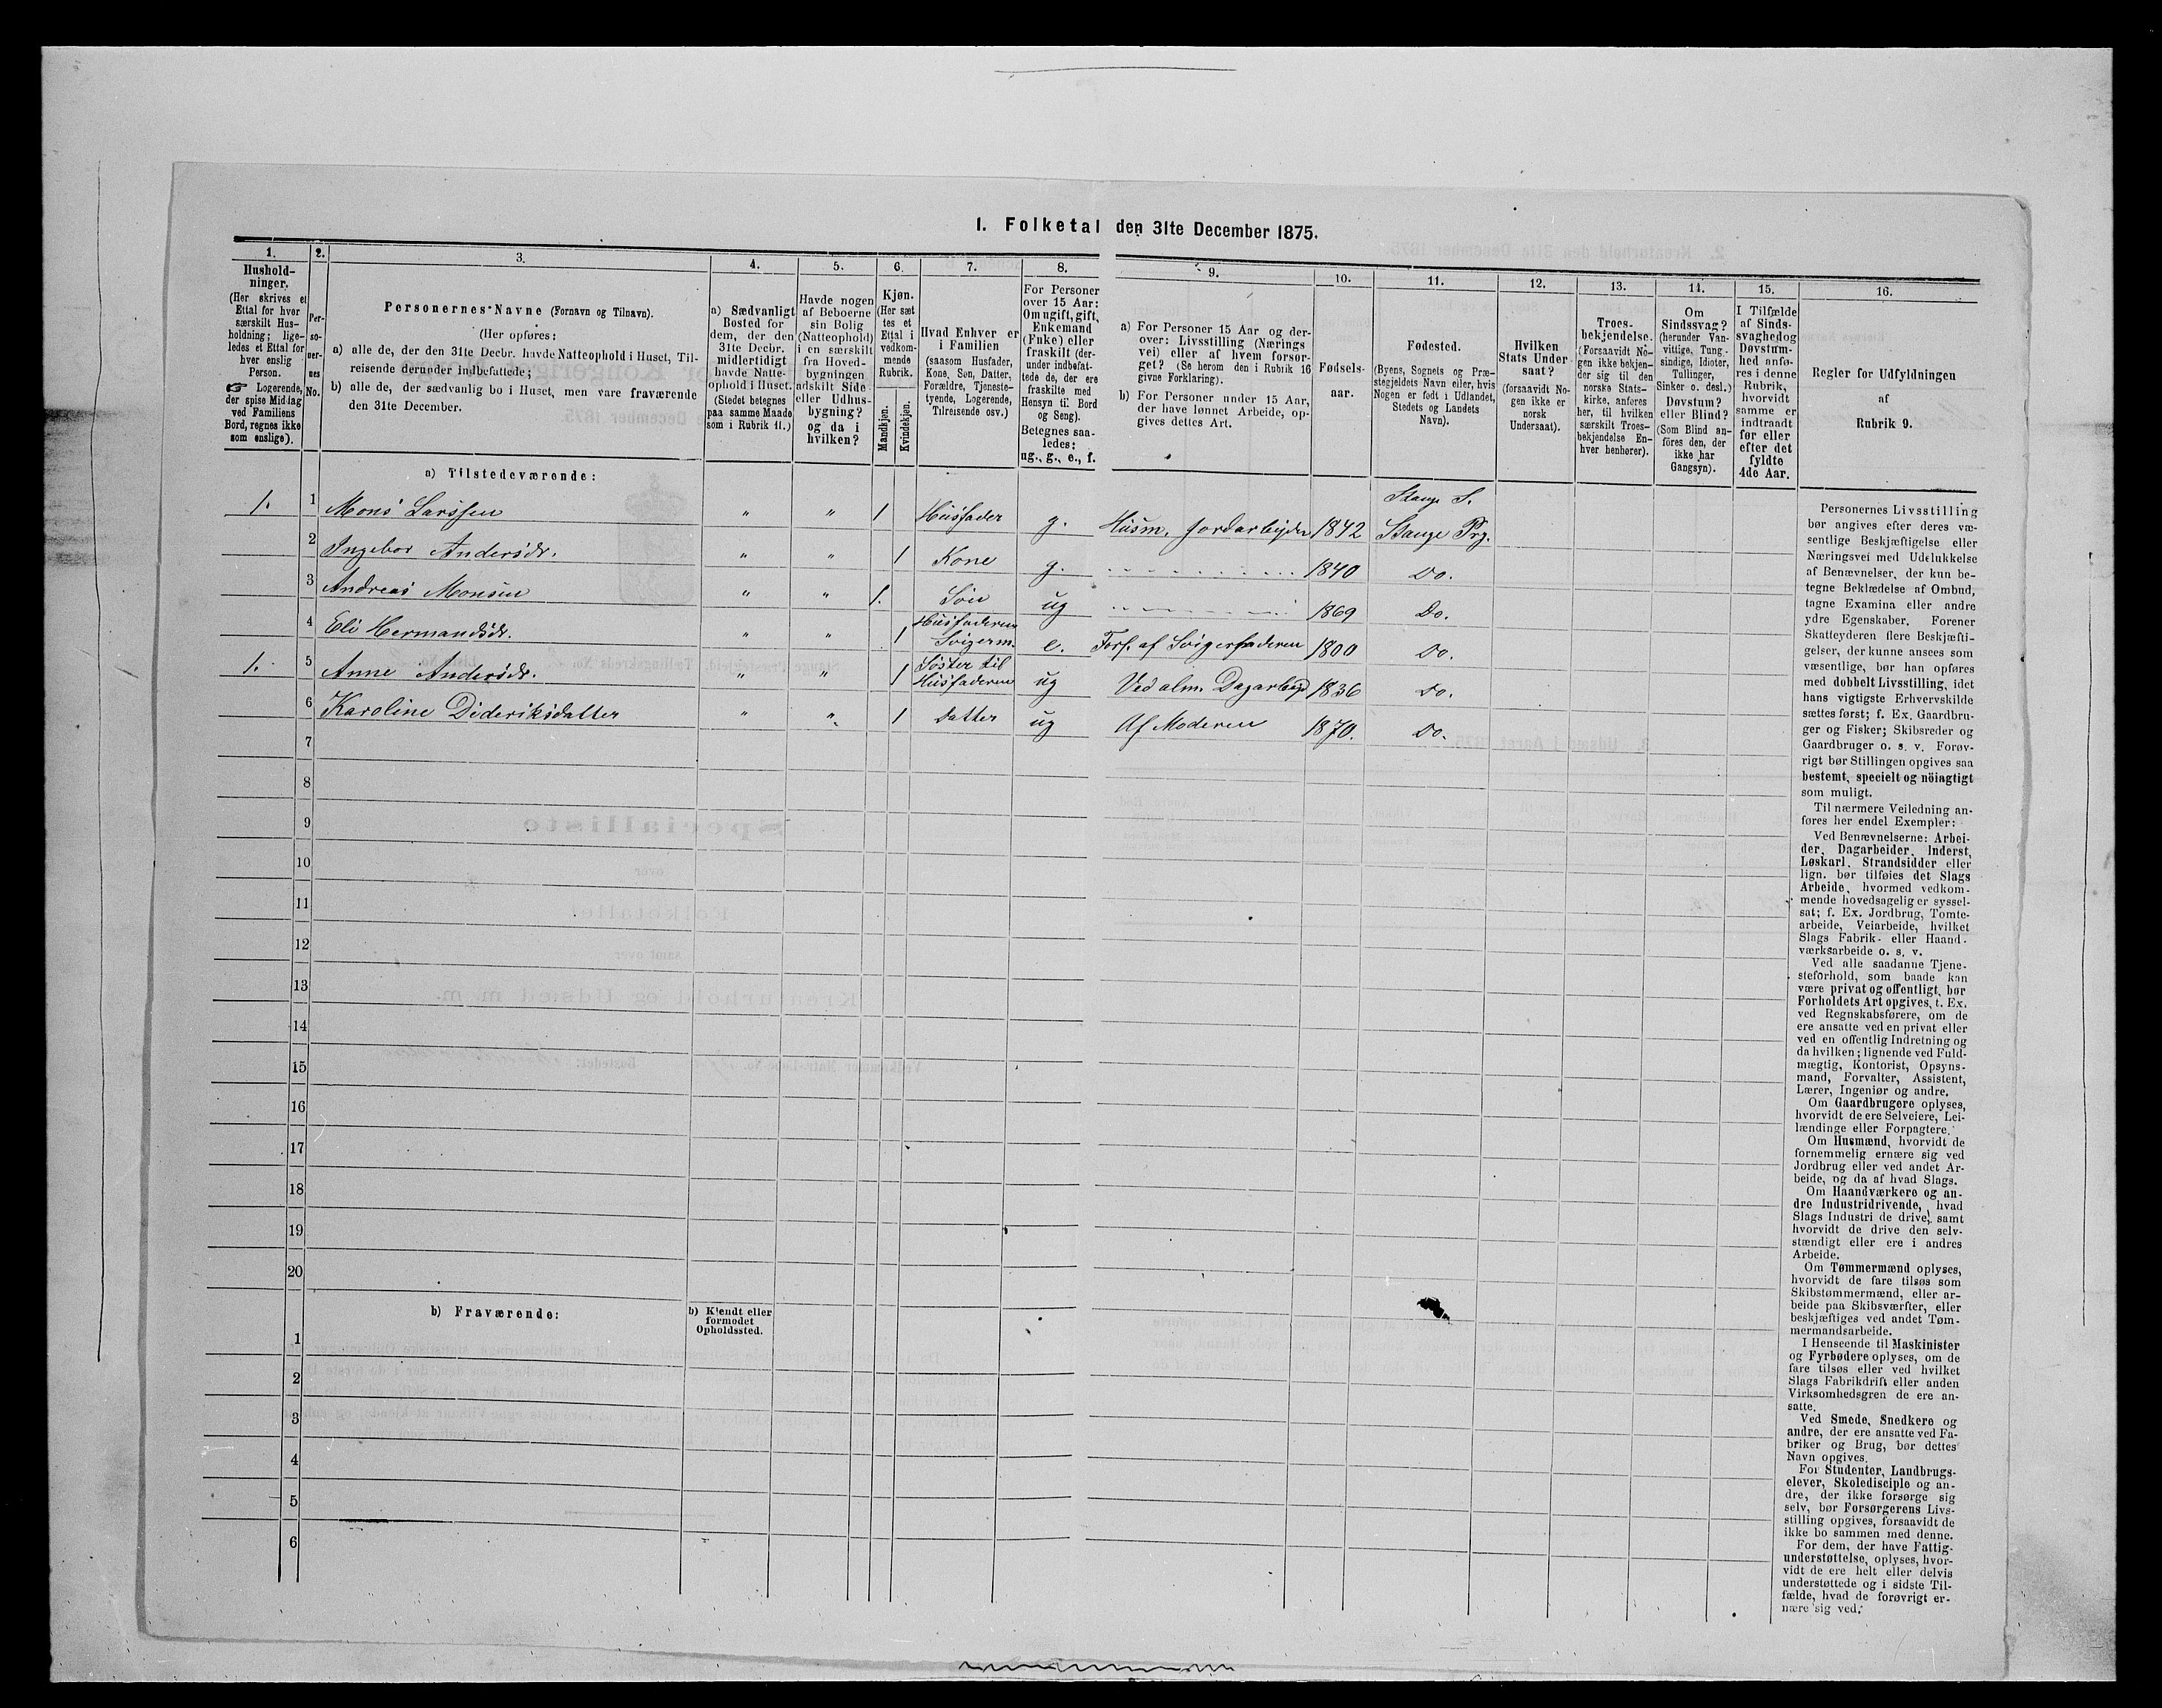 1. Folketal den 31te December 1875.
1.
Hushold-
ninger.
(Her skrives et
Ettal for hver
særskilt Hus-
holdning; lige-
ledes et Ettal for
hver enslig
Person.
☞ Logerende,
der spise Middag
ved Familiens
Bord, regnes ikke
som enslige).
2.
Per-
so-
ner-
nes
No.
3.
Personernes Navne (Fornavn og Tilnavn).
(Her opføres:
a) alle de, der den 31te Decbr. havde Natteophold i Huset, Til-
reisende derunder indbefattede;
b) alle de, der sædvanlig bo i Huset, men vare fraværende
den 31te December.
4.
a) Sædvanligt
Bosted for
dem, der den
31te Decbr.
midlertidigt
havde Natte-
ophold i Huset.
(Stedet betegnes
paa samme Maade
som i Rubrik 11.)
5.
Havde nogen
af Beboerne
sin Bolig
(Natteophold)
i en særskilt
fra Hoved-
bygningen
adskilt Side-
eller Udhus-
bygning?
og da i
hvilken?
6.
Kjøn.
(Her sæt
tes et
Ettal i
vedkom-
mende
Rubrik.
Mandkjøn.
Kvindekjøn.
7.
Hvad Enhver er
i Familien
(saasom Husfader,
Kone, Søn, Datter,
Forældre, Tjeneste-
tyende, Logerende,
Tilreisende osv.)
8.
For Personer
over 15 Aar:
Om ugift, gift,
Enkemand
(Enke) eller
fraskilt (der-
under indbefat-
tede de, der ere
fraskilte med
Hensyn til Bord
og Seng).
Betegnes saa-
ledes:
ug., g., e., f.
9.
a) For Personer 15 Aar og der-
over: Livsstilling (Nærings
vei) eller af hvem forsør-
get? (Se herom den i Rubrik 16
givne Forklaring).
b) For Personer under 15 Aar,
der have lønnet Arbeide, op-
gives dettes Art.
10.
Fødsels-
aar.
11.
Fødested.
(Byens, Sognets og Præ-
stegjeldets Navn eller, hvis
Nogen er født i Udlandet,
Stedets og Landets
Navn).
12.
Hvilken
Stats Under-
saat?
(forsaavidt No-
gen ikke er
norsk
Undersaat).
13.
Troes-
bekjendelse.
(Forsaavidt No-
gen ikke bekjen-
der sig til den
norske Stats-
kirke, anføres
her, til hvilken
særskilt Troes-
bekjendelse En-
hver henhører).
14.
Om
Sindssvag?
(herunder Van-
vittige, Tung-
sindige, Idioter,
Tullinger,
Sinker o. desl.)
Døvstum?
eller Blind?
(Som Blind an-
føres den, der
ikke har
Gangsyn).
15.
I Tilfælde
af Sinds-
svaghed og
Døvstum-
hed anfø-
res i denne
Rubrik,
hvorvidt
samme er
indtraadt
før eller
efter det
fyldte
4de Aar.
16.
Regler for Udfyldningen
af
Rubrik 9.
a) Tilstedeværende:
Stange S.
1. 1 Mons Larssen " " 1 Husfader g. Husm. Jordarbejder 1842 Stange Prg.
2 Ingebor Andersdr. " " 1 Kone g. 1840 Do.
3 Andreas Monsen " " 1. Søn ug 1869 Do.
4 Eli Hermandsdr. " " 1 Husfaderen Svigerm. e. Fors. af Svigerfaderen 1800 Do.
1. 5 Anne Andersdr. " " 1 Søster til Husfaderen ug Ved alm. Dagarbejd 1836 Do.
6 Karoline Dideriksdatter " " 1 Datter ug Af Moderen 1870. Do.
7
8
9
10
11
12
13
14
15
16
17
18
19
20
b) Fraværende:
b) Kjendt eller
formodet
Opholdssted.
1
2
3
4
5
6
Personernes Livsstilling
bør angives efter deres væ-
sentlige Beskjæftigelse eller
Næringsvei med Udelukkelse
af Benævnelser, der kun be-
tegne Beklædelse af Ombud,
tagne Examina eller andre
ydre Egenskaber. Forener
Skatteyderen flere Beskjæfti-
gelser, der kunne ansees som
væsentlige, bør han opføres
med dobbelt Livsstilling, idet
hans vigtigste Erhvervskilde
sættes først; f. Ex. Gaardbru-
ger og Fisker; Skibsreder og
Gaardbruger o. s. v. Forøv-
rigt bør Stillingen opgives saa
bestemt, specielt og nöiagtigt
som muligt.
Til nærmere Veiledning an-
føres her endel Exempler:
Ved Benævnelserne: Arbei-
der, Dagarbeider, Inderst,
Løskarl, Strandsidder eller
lign. bør tilføies det Slags
Arbeide, hvormed vedkom-
mende hovedsagelig er syssel-
sat; f. Ex. Jordbrug, Tomte-
arbeide, Veiarbeide, hvilket
Slags Fabrik- eller Haand-
værksarbeide o. s. v.
Ved alle saadanne Tjene-
steforhold, som baade kan
være privat og offentligt, bør
Forholdets Art opgives, t. Ex.
ved Regnskabsførere, om de
ere ansatte ved en privat eller
ved en offentlig Indretning og
da hvilken; lignende ved Fuld-
mægtig, Kontorist, Opsyns-
mand, Forvalter, Assistent,
Lærer, Ingeniør og andre.
Om Gaardbrugere oplyses,
hvorvidt de ere Selveiere, Lei-
lændinge eller Forpagtere.
Om Husmænd, hvorvidt de
fornemmelig ernære sig ved
Jordbrug eller ved andet Ar-
beide, og da af hvad Slags.
Om Haandværkere og an-
dre Industridrivende, hvad
Slags Industri de drive, samt
hvorvidt de drive den selv-
stændigt eller ere i andres
Arbeide.
Om Tømmermænd oplyses,
hvorvidt de fare tilsøs som
Skibstømmermænd, eller ar-
beide paa Skibsværfter, eller
beskjæftiges ved andet Tøm-
mermandsarbeide.
I Henseende til Maskinister
og Fyrbødere oplyses, om de
fare tilsøs eller ved hvilket
Slags Fabrikdrift eller anden
Virksomhedsgren de ere an-
satte.
Ved Smede, Snedkere og
andre, der ere ansatte ved Fa-
briker og Brug, bør dettes
Navn opgives.
For Studenter, Landbrugs-
elever, Skoledisciple og an-
dre, der ikke forsørge sig
selv, bør Forsørgerens Livs-
stilling opgives, forsaavidt de
ikke bo sammen med denne.
For dem, der have Fattig-
understøttelse, oplyses, hvor-
vidt de ere helt eller delvis
understøttede og i sidste Til-
fælde, hvad de forøvrigt er-
nære sig ved.